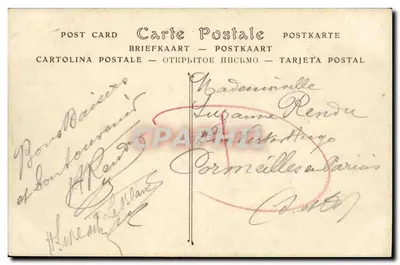 POST CARD Carte Postale POSTKARTE
BRIEFKAART — POSTKAART
CARTOLINA POSTALE — ОТКРЫТОЕ ПИСЬМО — TARJETA POSTAL
Bons Baisers
et bon souvenir
H Rendu
Mademoiselle
Suzanne Rendu
rue Victor Hugo
Cormeilles en Parisis
S. et O.